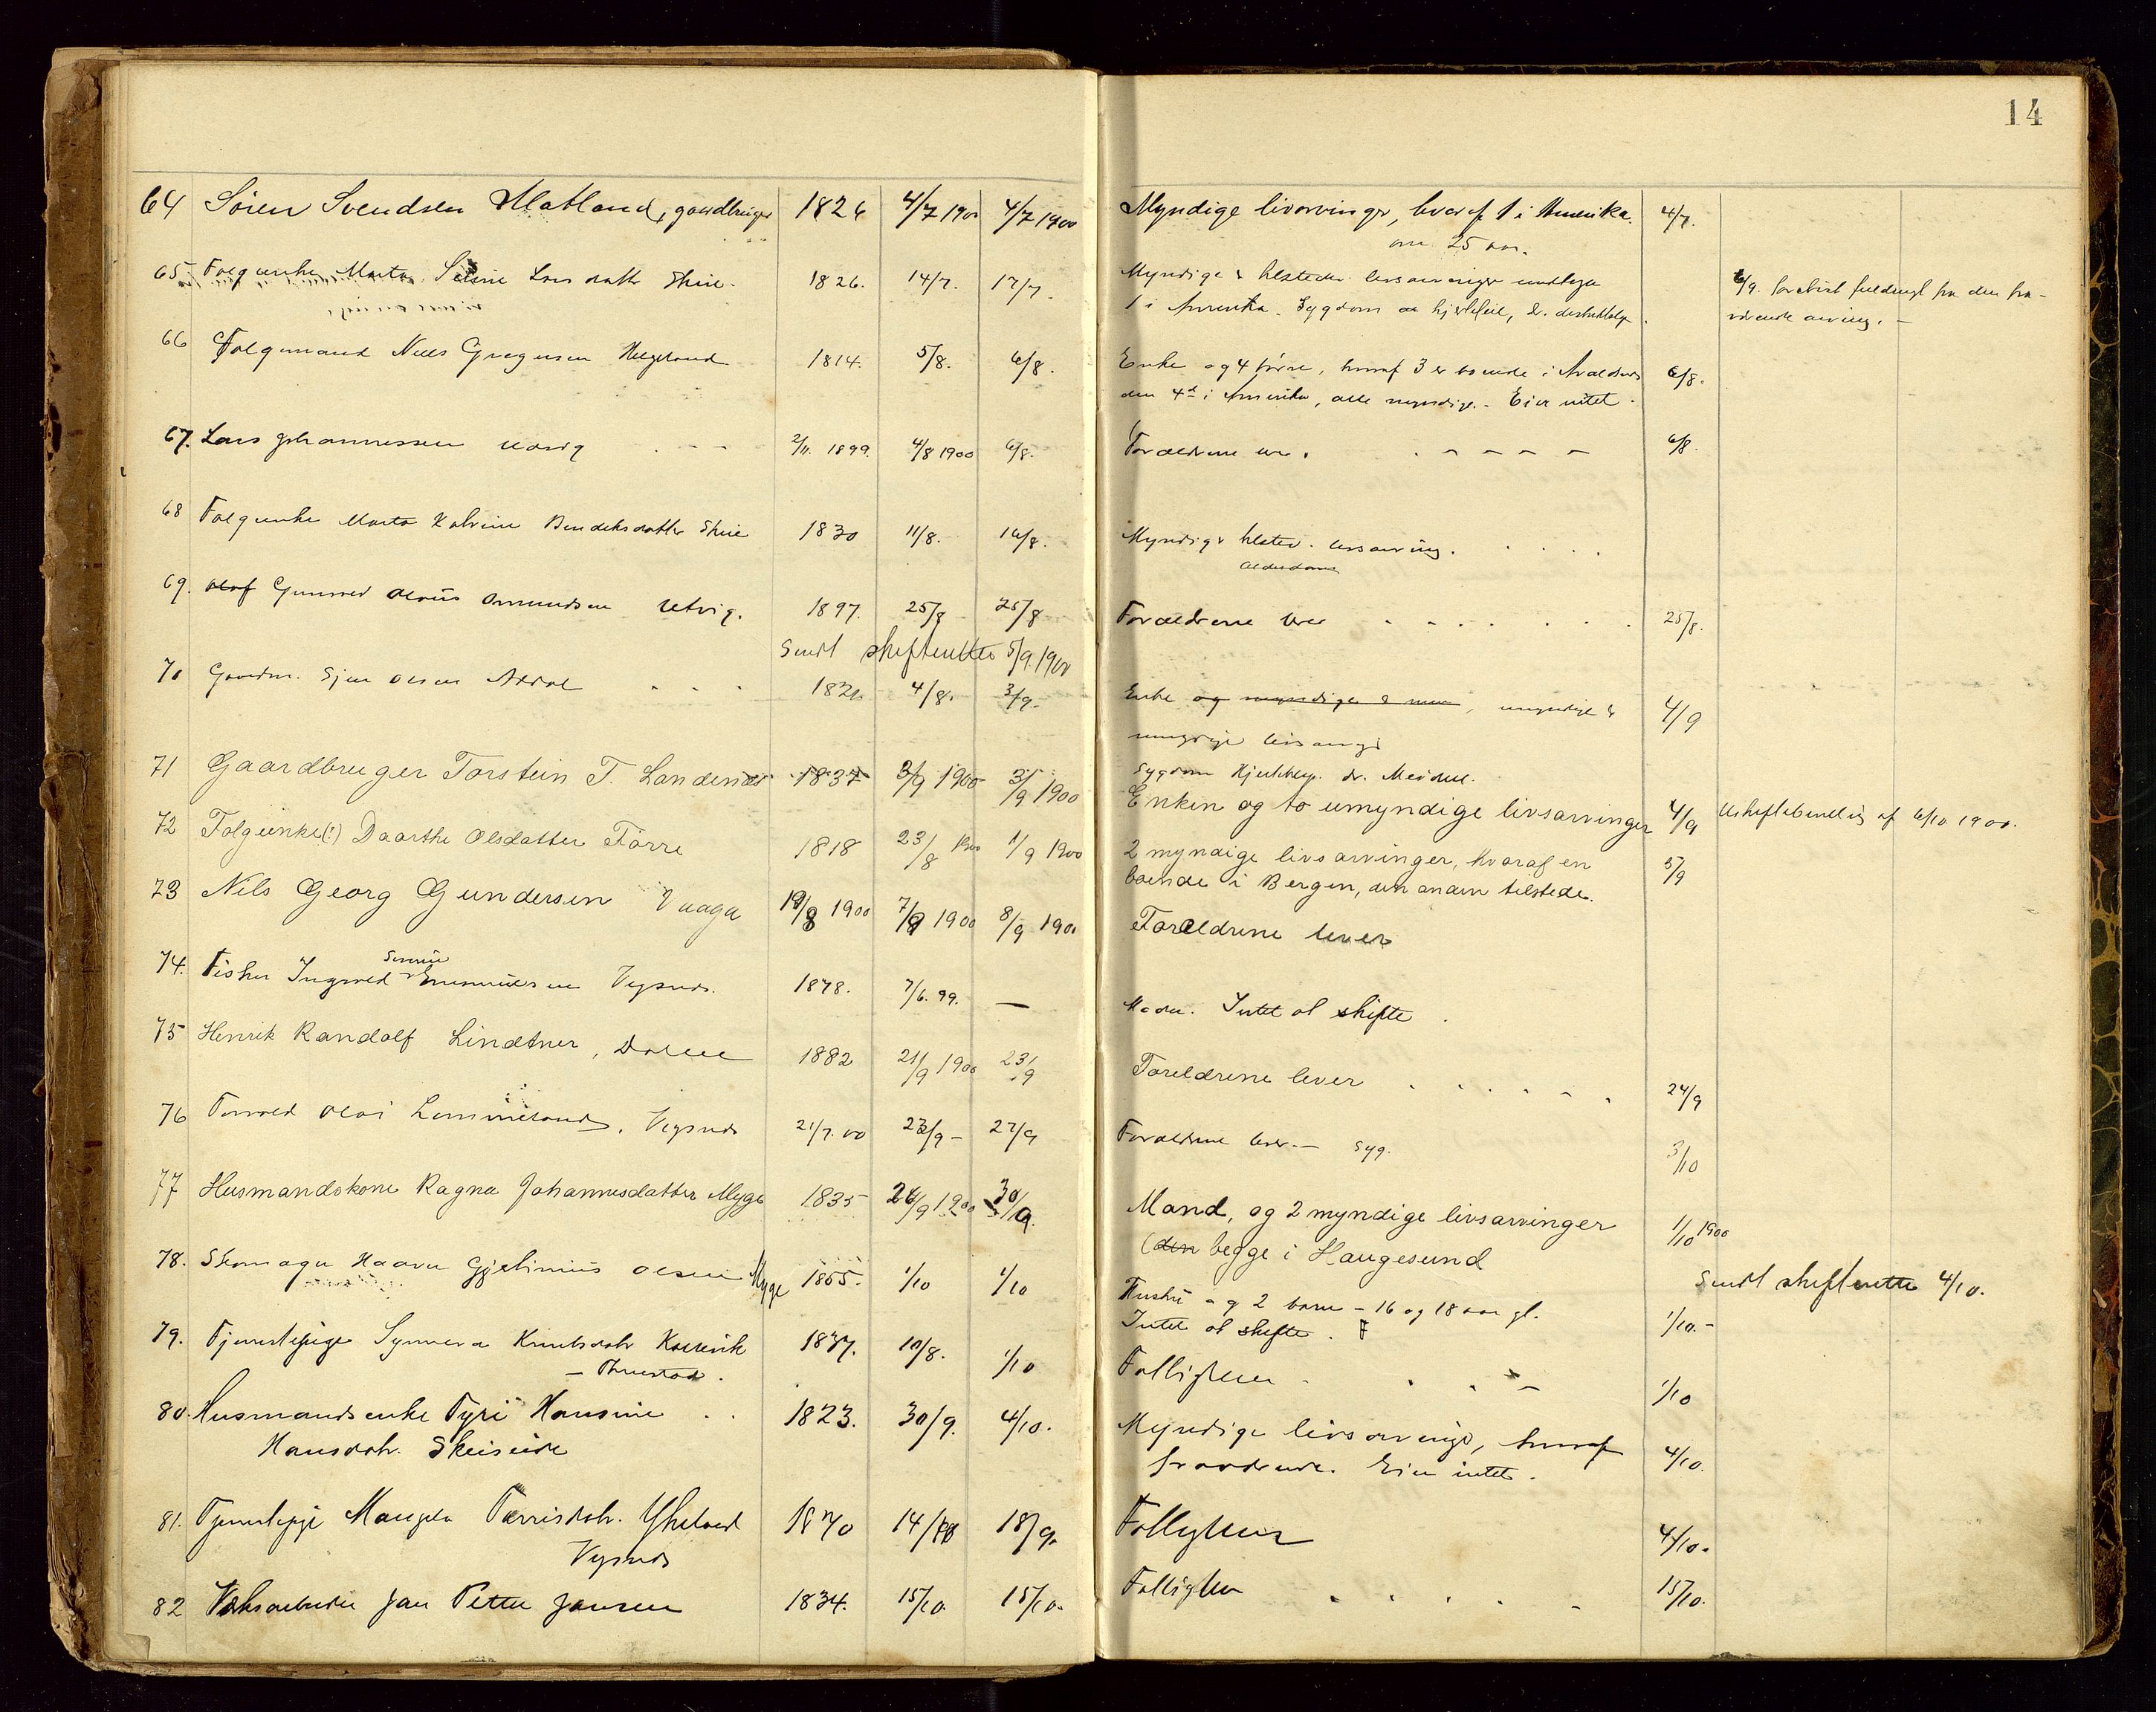 14
64 Sören Svendsen Matland, gaardbruger 1826 4/7 1900 4/7 1900 Myndige livsarvinger, hvoraf 1 i Amerika. 4/7.
om 25 aar.
65 Marta Serine Lars datter Skeie. 1826. 14/7. 17/7. Myndige & tilstede livsarvinger undtagen
1 i Amerika. Sygdom hjertefeil, dr.
6/9. fuldmagt fra den fra-
værende arving. —
66 Folgemand Niels Gregersen Helgeland 1814. 5/8. 6/8. Enke og 4 børn, hvoraf 3 er boende i Avaldsnes 6/8.
den 4de i Amerika, alle myndige. - Eier intet.
67. Lars Johannessen Udvig 2/11. 1899. 4/8 1900 6/8. Forældrene lever. 6/8.
68 Folgeenke Marta Katrine Bendiksdatter Skeie 1830 11/8. 16/8. Myndige & tilsted. livsarving.
Alderdom
69. Olaf Gunvald Olaus Omundsen Utvig. 1897. 25/8 25/8 Forældrene lever 25/8.
Sendt skifteretten 5/9 1900
70 Gaardm. Sjur Olsen Arvol 182 4/8. 3/9. Enke og myndige & , umyndige & 4/9
myndige livsarvg
Sygdom dr.
71 Gaardbruger Torstein T. Landenæs 1837 3/9 1900 3/9 1900 Enken og to umyndige livsarvinger 4/9 Uskiftebevilling af 6/10 1900.
72 Folgeenke(!) Daarthe Olsdatter Førre 1818 23/8 1900 1/9 1900 2 myndige livsarvinger, hvoraf en 5/9
boende i Bergen, den anden tilstede.
73 Nils Georg Gundersen Vaaga 19/8 1900 7/9 1900 8/9 1900 Forældrene lever
74. Fisker Ingvald Severin Vigsnæs. 1878. 7/6. 99. — Moder. Intet at skifte.
75 Henrik Randolf Lindtner, Dalene 1882 21/9 1900 23/9 Foreldrene lever 24/9
76 Torvald Olai Lammeland, Vigsnæs 21/7. 00 23/9 - 27/9 Forældrene lever. — Syg. 3/10
77 Husmandskone Ragna Johannesdatter Myge 1835 26/9 1900 30/9. Mand, og 2 myndige livsarvinger 1/10 1900
(den begge i Haugesund
78. Skomager Haavar Gjelinius Olsen Myge 1855. 1/10 1/10 Hustru og 2 barn - 16 og 18 aar gl. 1/10. -
Intet at skifte. F
Sendt skifteretten 4/10.
79. Tjenestepige Synneva Knutsdatr Kolvik 1837. 10/8. 1/10 Fattiglem 1/10
80. Husmandsenke Tyri Hansine 1823. 30/9. 4/10. Myndige livsarvinger, hvoraf 4/10.
Hansdatr. Skeiseide fraværende. Eier intet.
81. Tjenestepige Maugela Tørrisdatr. Ytreland 1870 14/ 18/9. Fattiglem 4/10.
Vigsnæs
82 Jan Petter Jansen 1834. 15/10. 15/10. Fattiglem 15/10.